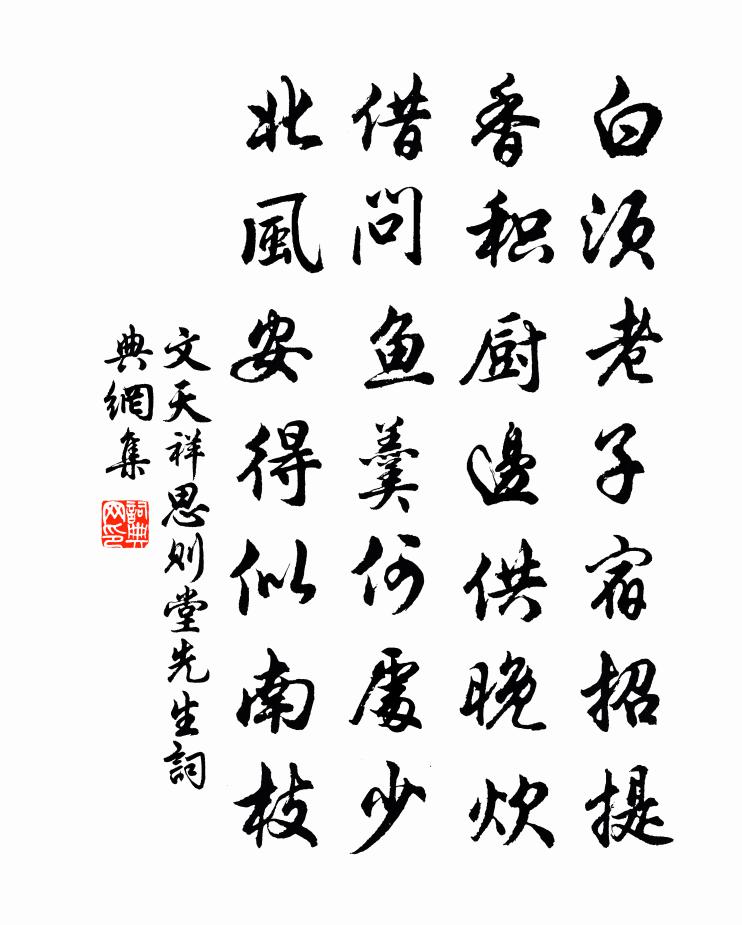 白须老子宿招提
香积厨邊供晚炊
借问鱼羹何處少
北風安得似南枝
文天祥思则堂先生詞
典網集
詞典
网印